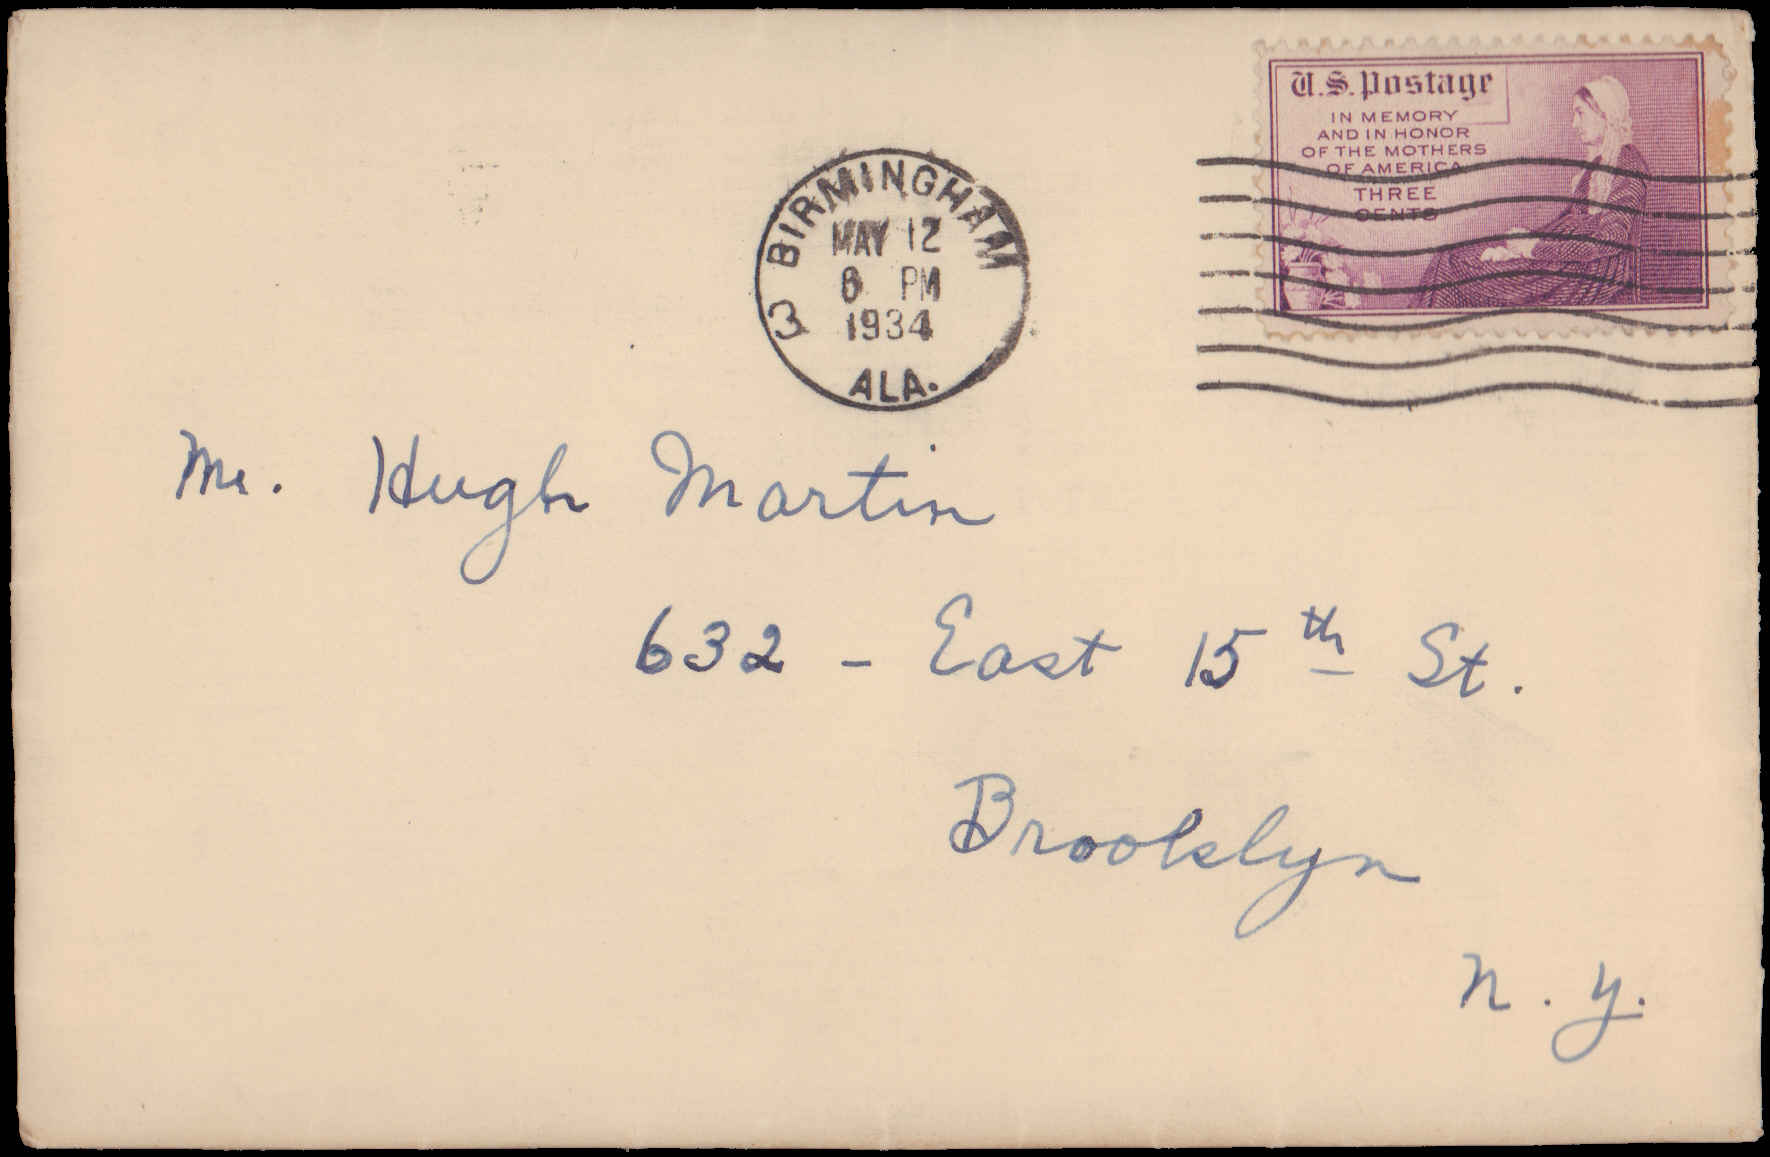 U.S. Postage
IN MEMORY
AND IN HONOR
OF THE MOTHERS
OF AMERICA
THREE
CENTS
BIRMINGHAM
MAY 12
6 PM
1934
3
ALA.
Mr. Hugh Martin
632 - East 15th St.
Brooklyn
N. Y.